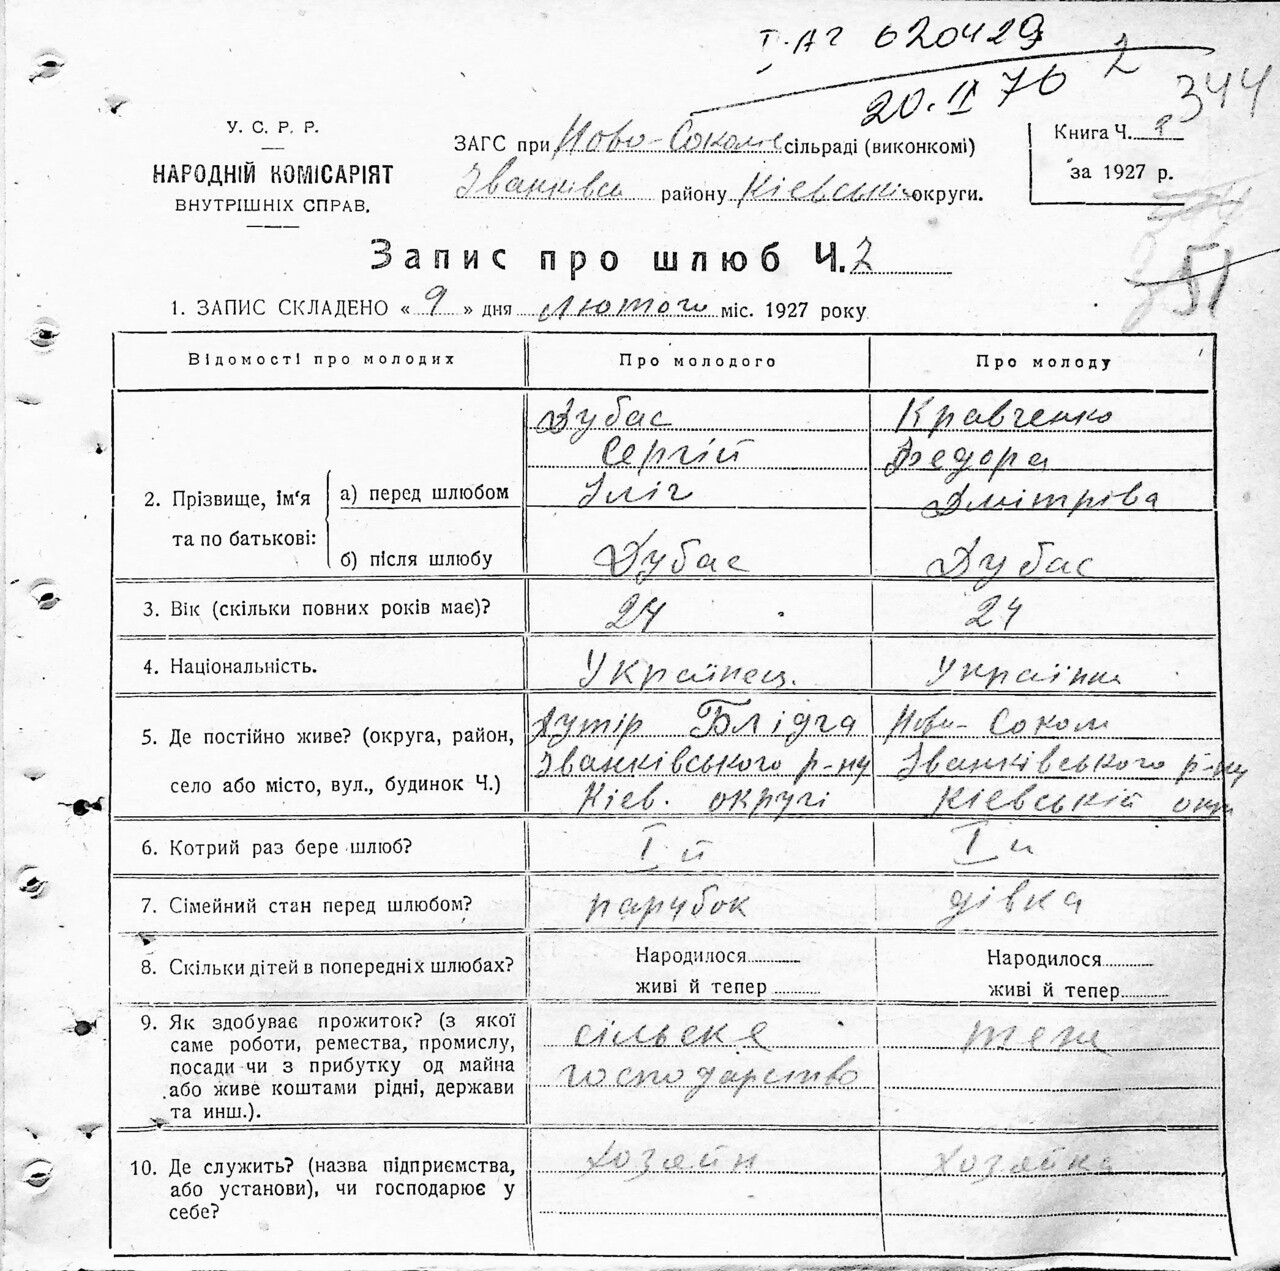 І-АГ 620429
20.II 76
2
344
У. С. Р. Р.
НАРОДНІЙ КОМІСАРІЯТ
ВНУТРІШНІХ СПРАВ.
ЗАГС при Ново-Соколс сільраді (виконкомі)
Іванківсь району Кієвської округи.
Книга Ч. 1
за 1927 р.
51
Запис про шлюб Ч. 2
1. ЗАПИС СКЛАДЕНО « 9 » дня лютого міс. 1927 року
Відомості про молодих Про молодого Про молоду
Дубас Кравченко
Сергій Федора
2. Прізвище, ім'я а) перед шлюбом Іліч Дмітріва
та по батькові: б) після шлюбу Дубас Дубас
3. Вік (скільки повних років має)? 24 24
4. Національність. Українец. Українка
5. Де постійно живе? (округа, район, село або місто, вул., будинок Ч.)
Хутір Блідча Ново-Сокол
Іванківського р-ну Іванківського р-ну
Кіев. округі Кієвській окр
6. Котрий раз бере шлюб? І й І й
7. Сімейний стан перед шлюбом? парубок дівка
8. Скільки дітей в попередніх шлюбах? Народилося Народилося
живі й тепер живі й тепер
9. Як здобуває прожиток? (з якої сільске теж
саме роботи, ремества, промислу, господарство
посади чи з прибутку од майна
або живе коштами рідні, держави
та инш.).
10. Де служить? (назва підприємства, хозяйн хозяйка
або установи), чи господарює у
себе?